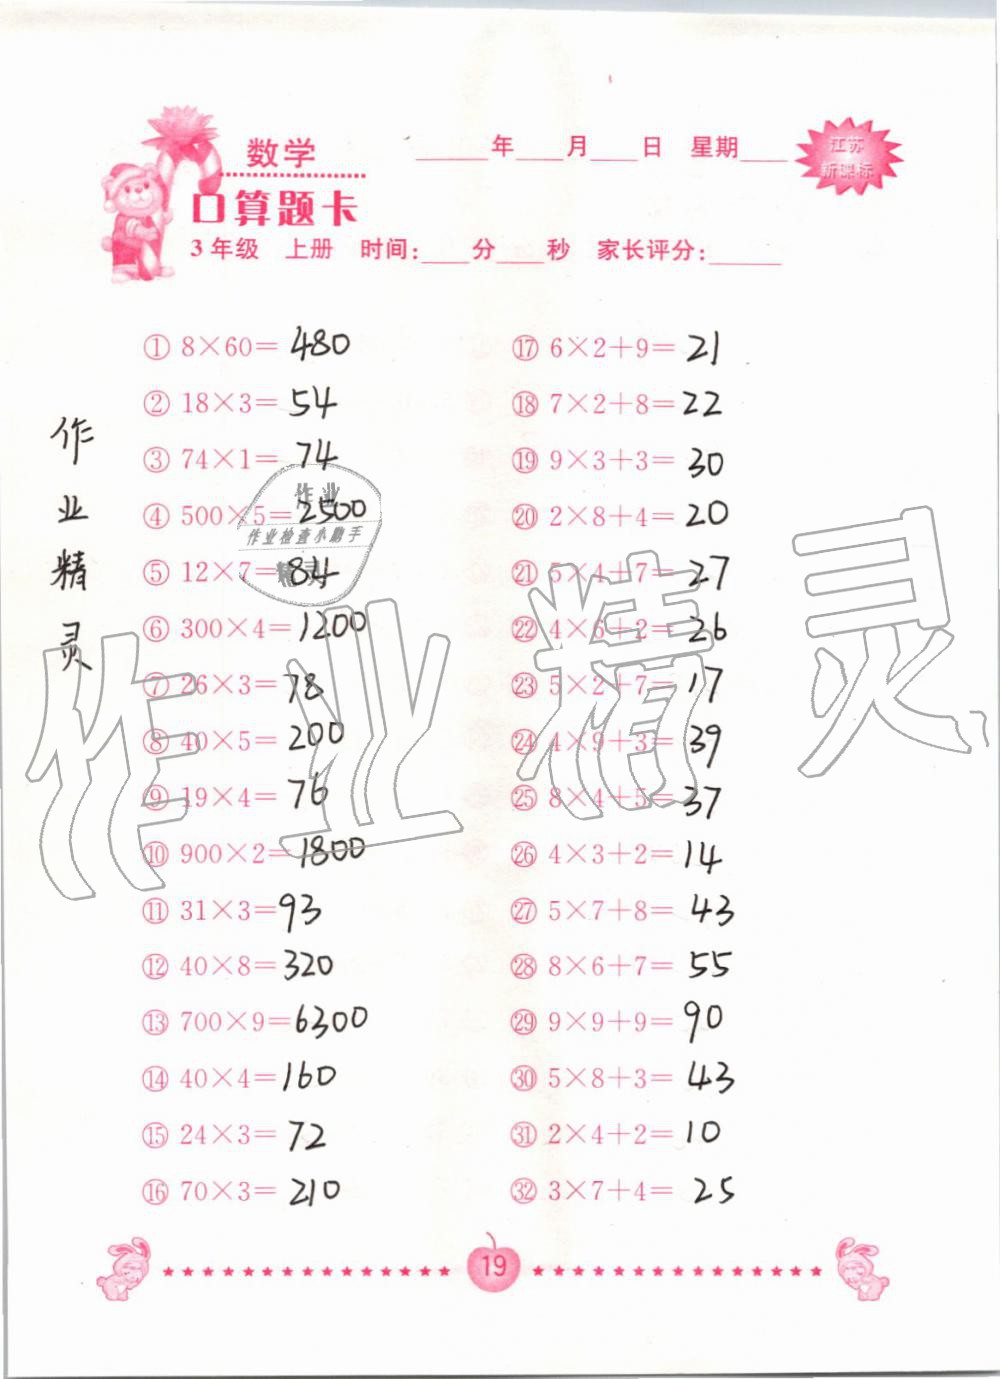 数学
____年____月____日 星期____
江苏
新课标
口算题卡
3年级 上册 时间:____分____秒 家长评分:____
① 8×60= 480
② 18×3= 54
③ 74×1= 74
④ 500×5= 2500
⑤ 12×7= 84
⑥ 300×4= 1200
⑦ 26×3= 78
⑧ 40×5= 200
⑨ 19×4= 76
⑩ 900×2= 1800
⑪ 31×3= 93
⑫ 40×8= 320
⑬ 700×9= 6300
⑭ 40×4= 160
⑮ 24×3= 72
⑯ 70×3= 210
⑰ 6×2+9= 21
⑱ 7×2+8= 22
⑲ 9×3+3= 30
⑳ 2×8+4= 20
㉑ 5×4+7= 27
㉒ 4×6+2= 26
㉓ 5×2+7= 17
㉔ 4×9+3= 39
㉕ 8×4+5= 37
㉖ 4×3+2= 14
㉗ 5×7+8= 43
㉘ 8×6+7= 55
㉙ 9×9+9= 90
㉚ 5×8+3= 43
㉛ 2×4+2= 10
㉜ 3×7+4= 25
作业精灵
作业
作业检查小助手
精灵
作业精灵
19